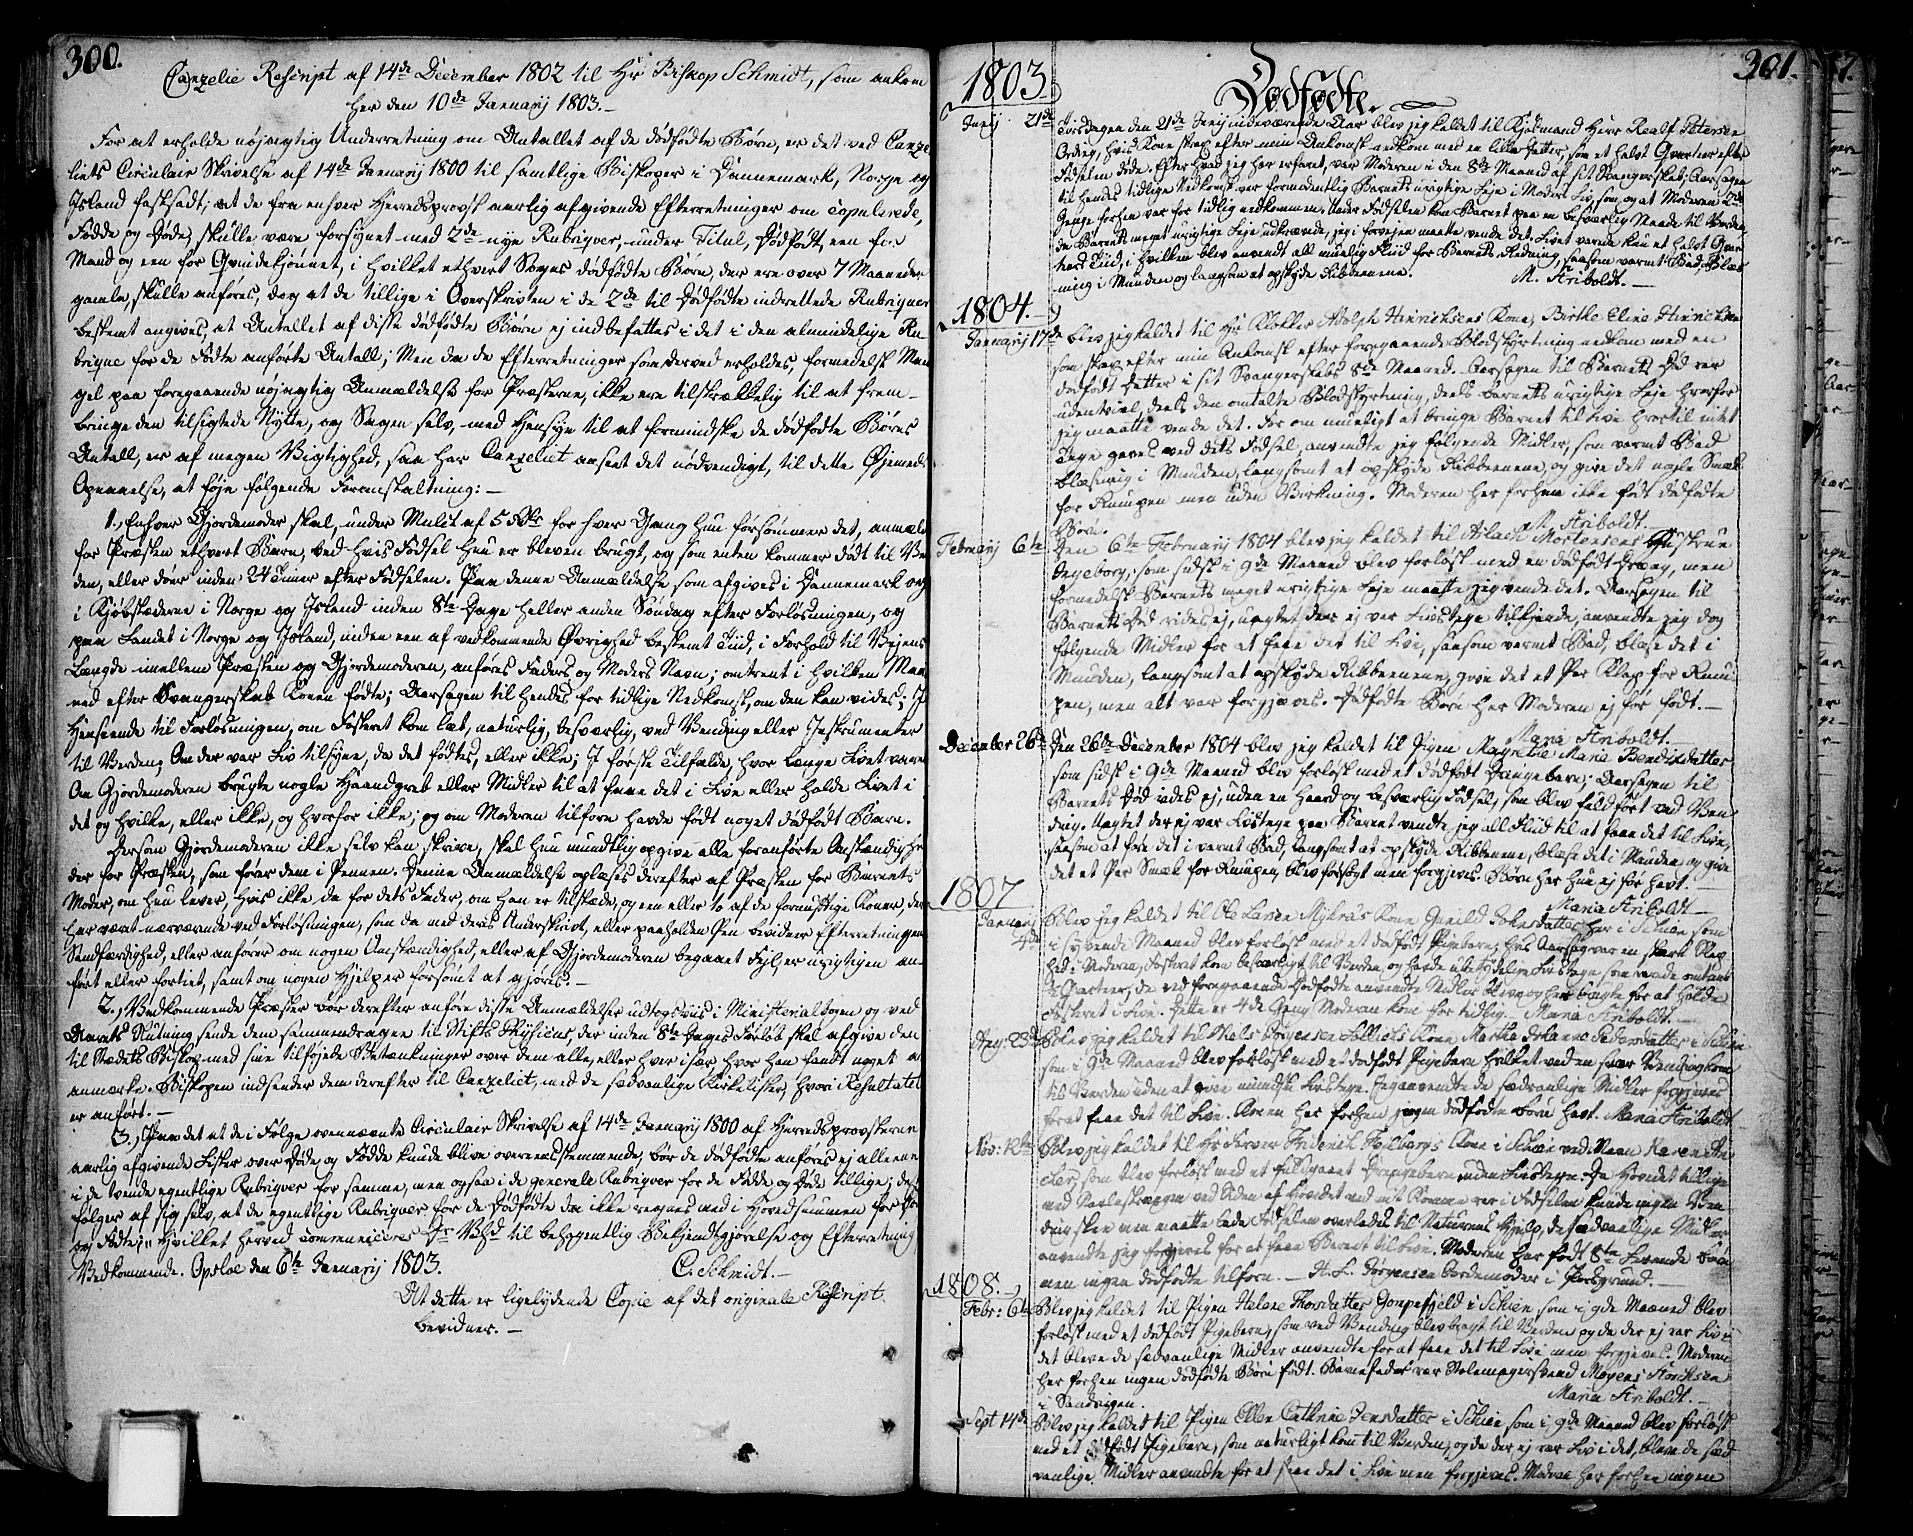 300.
Canzelie Rescript af 14de December 1802 til Hr Biskop Schmidt, som ankom
her den 10de Januarij 1803.—
For at erholde nøjagtig Underretning om Antallet af de dödfödte Børn, er det ved Canze-
liets Circulair Skrivelse af 14de Januarij 1800 til samtlige Biskoper i Dannemark, Norge og
Island fastsadt; at de fra enhver Herredsprovst aarlig afgivende Efterretninger om Copulerede,
Födde og Döde, skulle være forsynet med 2de nye Rubriqver, under Titul, Dödfödt, een for
Mand og een for Qvindekjönnet, i hvilket ethvert Sogns dödfödte Börn, der ere over 7 Maaneder
gamle, skulle anföres, dog at de tillige i Overskriften i de 2de til Dödfödte indrettede Rubriqver
bestemt angives, at Antallet af disse dödfödte Börn ej indbefattes i det i den almindelige Ru-
brique for de Födte anförte Antall; Men da de Efterretninger som derved erholdes, formedelst Man-
gel paa foregaaende nöjagtig Anmældelse for Præsterne, ikke ere tilstrækkelig til at frem-
bringe den tilsigtede Nytte, og Sagen selv, med Hensyn til at formindske de dödfödte Börns
Antall, er af megen Vigtighed, saa har Canzeliet anseet det nödvendigt, til dette Öjemeds
Opnaaelse, at föje fölgende Foranstaltning:—
1., Enhver Gjordemoder skal, under Mulct af 5 Rdr for hver Gang hun forsömmer det, anmælde
for Præsten ethvert Barn, ved hvis Födsel hun er bleven brugt, og som enten kommer dödt til Ver-
den, eller döer inden 24 Timer efter Födselen. Paa denne Anmældelse som afgives i Dannemark og
i Kjöbstæderne i Norge og Island inden 8te Dage heller anden Söndag efter Forlösningen, og
paa Landet i Norge og Island, inden een af vedkommende Övrighed bestemt Tiid, i Forhold til Vejens
Længde imellem Præsten og Gjordemoderen, anföres Faders og Moders Navn; omtrent i hvilken Maa-
ned efter Svangerskab Konen födte; Aarsagen til hendes for tidlige Nedkomst, om den kan vides; I
Henseende til Forlösningen, om Fosteret kom læt, naturlig, besværlig, ved Vending eller Instrumenter
til Verden; Om der var Liv tilsyne, da det födtes, eller ikke; I förste Tilfælde, hvor længe Livet varede
Om Gjordemoderen brugte nogle Haandgreb eller Midler til at faae det i Live eller holde Livet i
det og hvilke, eller ikke, og hvorfor ikke; og om Moderen tilforn havde födt noget dödfödt Barn.
Dersom Gjordemoderen ikke selv kan skrive, skal hun mundtlig opgive alle foranförte Omstændighe-
der for Præsten, som förer dem i Pennen. Denne Anmældelse oplæses derefter af Præsten for Barnets
Moder, om hun lever, hvis ikke da for dets Fader, om han er tilstæde, og een eller to af de fornuftige Koner, der
har været nærværende ved Forlösningen, som da med deres Underskrivt, eller paaholden Pen bevidner Efterretningens
Sandfærdighed, eller anförer om nogen Omstændighed, eller af Gjordemoderen begaaet Fejl, er urigtigen an-
fört eller fortiet, samt om nogen Hjelper forsömt at gjöres.—
2., Vedkommende Præster bör derefter anföre disse Anmældelser udtogsviis i Ministerialbogen og ved
Aarets Slutning sende dem sammendragen til Stifts Physicus, der inden 8te Dages Forlöb skal afgive den
til Stædets Biskop med sine tilföjede Betænkninger over dem alle, eller hver især, hvor han fandt noget at
anmærke. Biskopen indsender dem derefter til Canzeliet, med de sædvanlige Kirkelister, hvori Resultatet
er anfört.—
3., Paa det at de i Fölge ovennævnte Circulair Skrivelse af 14de Januarij 1800 af Herredsprovsterne
aarlig afgivende Lister over Döde og Födde kunde blive overeensstemmende, bör de dödfödte anföres ej alleene
i de tvende egentlige Rubriqver for samme, men ogsaa i de generale Rubriqver for de Födde og Döde tillige; det
fölger af sig selv, at de egentlige Rubriqver for de Dödfödte da ikke regnes med i Hovedsummen for Döde
og Födte;„ Hvilket herved communiceres Dr. Vhd til behagentlig Bekjendtgjörelse og Efterretning
Vedkommende. Opsloe den 6te Januarij 1803. C. Schmidt.—
At dette er ligelydende Copie af det originale Rescript
bevidner.—
1803 Dödfödte. 301.
Junij 21de Tirsdagen den 21de Junij indeværende Aar blev jeg kaldet til Kjöbmand Herr Realf Petersen
Ording, hvis Kone strax efter min Ankomst nedkom med en liden Datter, som et halvt Qvarteer efter
Födselen döde. Efter hvad jeg har erfaret, var Moderen i den 8de Maaned af sit Svangerskab; Aarsagen
til hendes tidlige Nedkomst var formodentlig Barnets urigtige Leje i Moders Liv, som og at Moderen 2de
Gange forhen var for tidlig nedkommen. Under Födselen kom Barnet paa en besværlig Maade til Verden,
da Barnets meget urigtige Leje udkrævede, jeg i forvejen maatte vende det. Livet varede kun et halvt Qvar-
teers Tiid, i hvilken blev anvendt all muelig Fliid for Barnets Redning, saasom varmt Bad, Blæs-
ning i Munden og langsom at opskyde Ribbeenene. M. Ariboldt.—
1804.
Januarij 17de blev jeg kaldet til Hr Klokker Adolph Hinrichsens Kone, Birthe Eline Hinrichsen
som strax efter min Ankomst efter foregaaende Blodstyrtning nedkom med en
dödfödt Datter i sit Svangerskabs 8de Maaned. Aarsagen til Barnets Död var
udentvivl, deels den omtalte Blodstyrtning, deels barnets urigtige Leje hvorfor
jeg maatte vende det. For om mueligt at bringe Barnet til Live hvortil intet
Tegn gaves ved dets Födsel, anvendte jeg fölgende Midler, som varmt Bad
blæsning i Munden, langsomt at opskyde Ribbeenene, og give det nogle Smæk
for Rumpen men uden Virkning. Moderen har forhen ikke födt dödfödte
Börn. M. Ariboldt.—
Februarij 6te Den 6te Februarij 1804 blev jeg kaldet til Aslach Mortensens Hustrue
Ingeborg, som sidst i 9de Maaned blev forlöst med en dödfödt Dreng, men
formedelst Barnets meget urigtige Leje maatte jeg vende det. Aarsagen til
Barnets Död vides ej, uagtet der ej var Livstegn tilkjende, anvendte jeg dog
fölgende Midler for at faae det til Live, saasom varmt Bad, blæse det i
Munden, langsomt at opskyde Ribbeenene, give det et Par Klap for Rum-
pen, men alt var forgjæves. Dödfödte Börn har Moderen ej för födt.—
Maria Ariboldt.
December 26de Den 26de December 1804 blev jeg kaldet til Pigen Magrethe Marie Bendixdatter
som sidst i 9de Maaned blev forlöst med et dödfödt Drangebarn; Aarsagen til
Barnets Död vides ej, uden en haard og besværlig Födsel, som blev fuldfört ved Ven-
ding. Uagtet der ej var Livstegn paa Barnet vendte jeg all Fliid til at faae det til Live,
saasom at före det i varmt Bad, langsomt at opskyde Ribbeenene, blæse det i Munden og give
det et Par Smæk for Rumpen, blev forsögt men forgjeves. Börn har hun ej för havt.—
Maria Ariboldt—
1807
Januarij 4de Blev jeg kaldet til Ole Larsen Myhrens Kone Gunild Johnsdatter her i Schien, som
i syvende Maaned blev forlöst med et dödfödt Pigebarn, hvis Aarsag var en stærk Klap-
hed i Moderen, Fosteret kom besværligt til Verden, og havde ubetydelige Livstegn, som varede omtrent
1/2 Qvarteer, de ved foregaaende Dödfödte anvendte Midler bleve og her brugte for at holde
Fosteret i Live. Dette er 4de Gang Moderen kom for tidlig.— Maria Ariboldt—
Aug: 23de Blev jeg kaldet til Niels Jörgensen Kone Marthe Johanne Pedersdatter i Schien
som i 9de Maaned blev forlöst med et dödfödt Pigebarn, hvilket ved en svær Vending kom
til Verden uden at give mindste Livstegn. Jeg anvendte de sædvanlige Midler forgjeves
for at faae det til Live. Konen har forhen ingen dödfödte Börn havt. Maria Ariboldt
Nov: 12te Blev jeg kaldet til Hr Farver Friderich Feilbergs Kone i Schien ved Navn Karen An-
ker, som blev forlöst med et fuldgaaet Drengebarn uden Livstegn. Da Hovedet tillige
med Navlestrængen ved Siden af Hovedet ved mit Komme var i Födselen kunde ingen Ven-
ding skee men maatte lade Födselen overlades til Naturens Hjelp, de sædvanlige Midler
anvendte jeg forgjeves for at faae Barnet til Live. Moderen har födt 8te Levende Börn
men ingen dödfödte tilforn.— H. L. Jörgensen Jordemoder i Porsgrund.—
1808.
Febr: 6te Blev jeg kaldet til Pigen Helene Thorsdatter Gompefjeld i Schien, som i 9de Maaned blev
forlöst med et dödfödt Pigebarn, som ved Vending blev bragt til Verden og da der ej var Liv i
det bleve de sædvanlige Midler anvendte for at faae det til Live men forgjeves. Moderen
har forhen ingen dödfödte Börn födt. Barnefader var Stolemagersvend Mogens Hendrichsen
i Sandvigen. Maria Ariboldt.—
Sept 14de Blev jeg kaldet til Pigen Ellen Cathrine Jensdatter i Schien som i 9de Maaned blev forlöst
med et dödfödt Pigebarn, som naturligt kom til Verden, og da der ej var Liv i det, bleve de sæd-
vanlige Midler anvendte for at faae det i Live men forgjeves. Moderen har forhen ingen